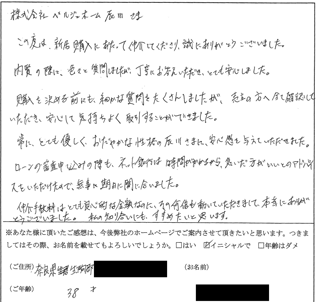 株式会社 ベルジュホーム 辰川 様
この度は、新居購入にあたって仲介してくださり、誠にありがとうございました。
内覧の際に、色々と質問しましたが、丁寧にお答えいただき、とても安心しました。
購入を決める前にも、細かな質問をたくさんしましたが、売主の方へ全て確認して
いただき、安心して気持ちよく取引することができました。
常に、とても優しく、おだやかな性格の辰川さまに、安心感を与えていただきました。
ローンの審査申し込みの際も、ネット銀行は時間がかかるから、急いだ方がいいとのアドバイ
スをいただけたので、無事に期日に間に合いました。
仲介手数料はとても良心的な金額なのに、その何倍も動いていただきまして、本当にありが
とうございました。 私の知り合いにも、すすめたいと思います。
※あなた様に頂いたご感想は、今後弊社のホームページでご案内させて頂きたいと思います。つき
ましてはその際、お名前を載せてもよろしいでしょうか。□はい ☑イニシャルで □年齢はダメ
(ご住所) 奈良県生駒郡 (お名前)
(ご年齢) 38 才